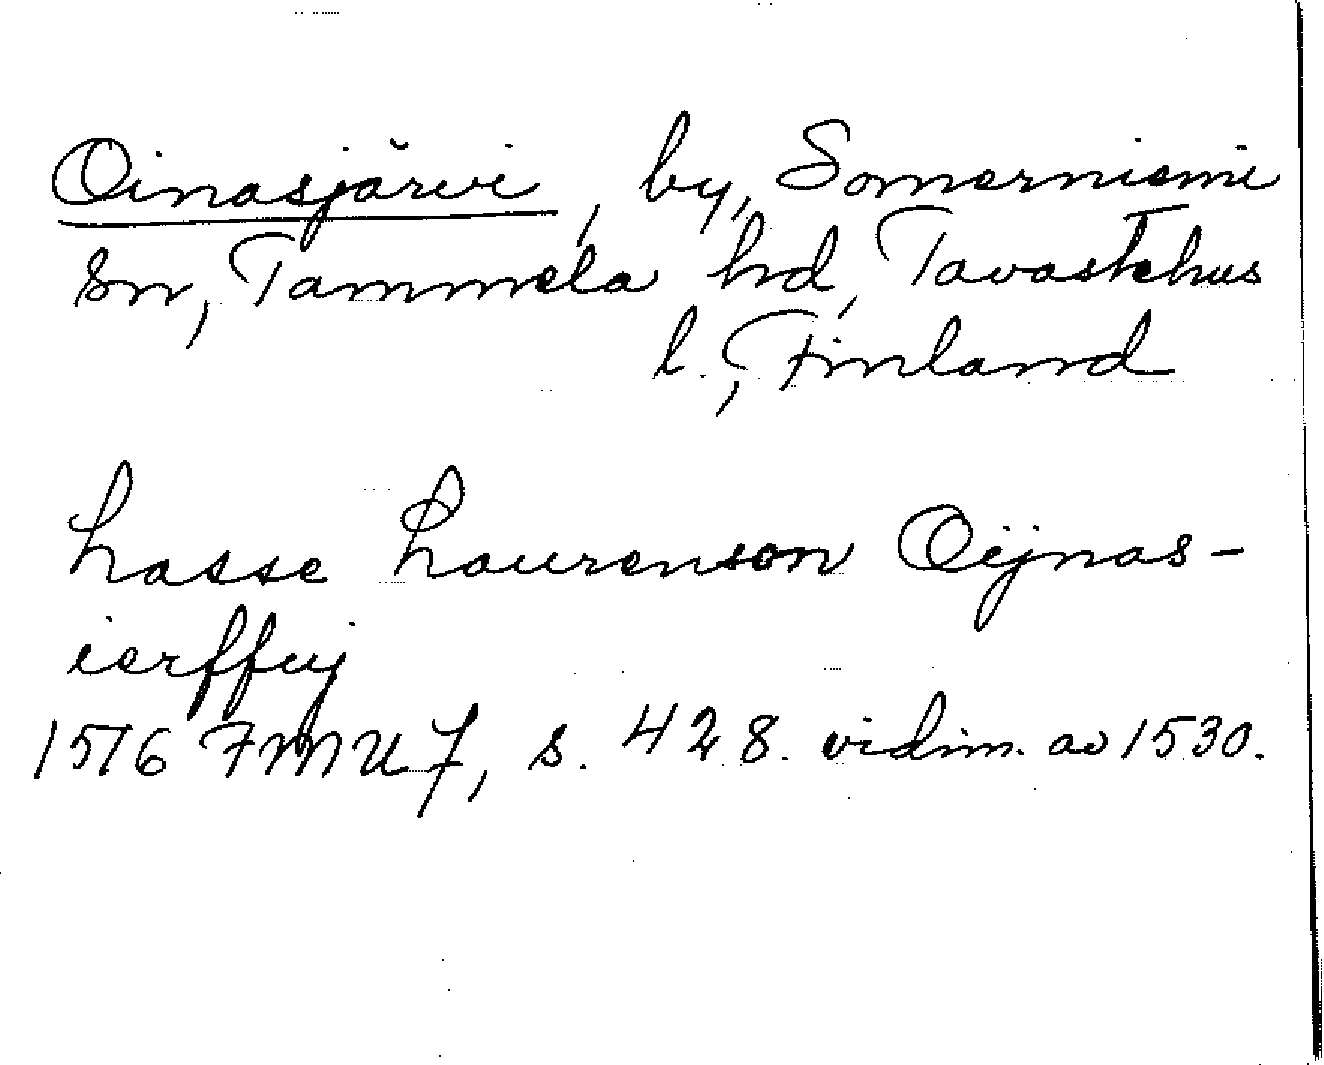 Oinasjärvi, by, Somerniemi
sn, Tammela hd, Tavastehus
l., Finland
Lasse Laurenson Oijnas-
ierffuj
1516 FMU 7, s. 428. vidim. av 1530.